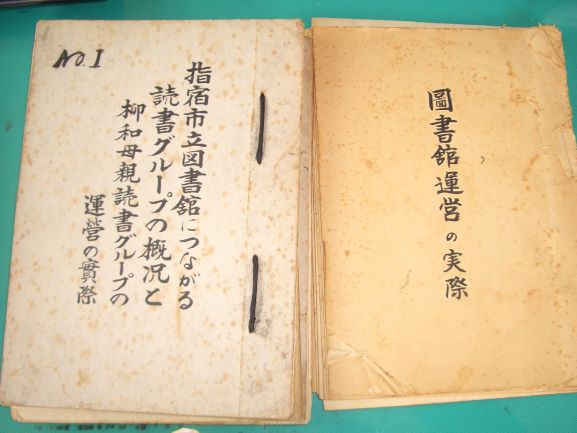 NO. I
指宿市立図書舘につながる
読書グループの概況と
柳和母親読書グループの
運営の實際
圖書舘運営の実際